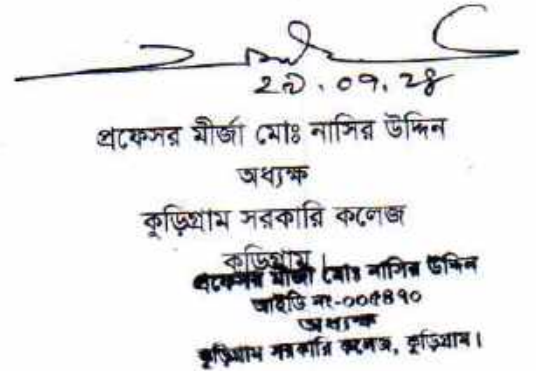 ২৯.০৭.২৪
প্রফেসর মীর্জা মোঃ নাসির উদ্দিন
অধ্যক্ষ
কুড়িগ্রাম সরকারি কলেজ
কুড়িগ্রাম।
প্রফেসর মীর্জা মোঃ নাসির উদ্দিন
আইডি নং-০০৫৪৭০
অধ্যক্ষ
কুড়িগ্রাম সরকারি কলেজ, কুড়িগ্রাম।